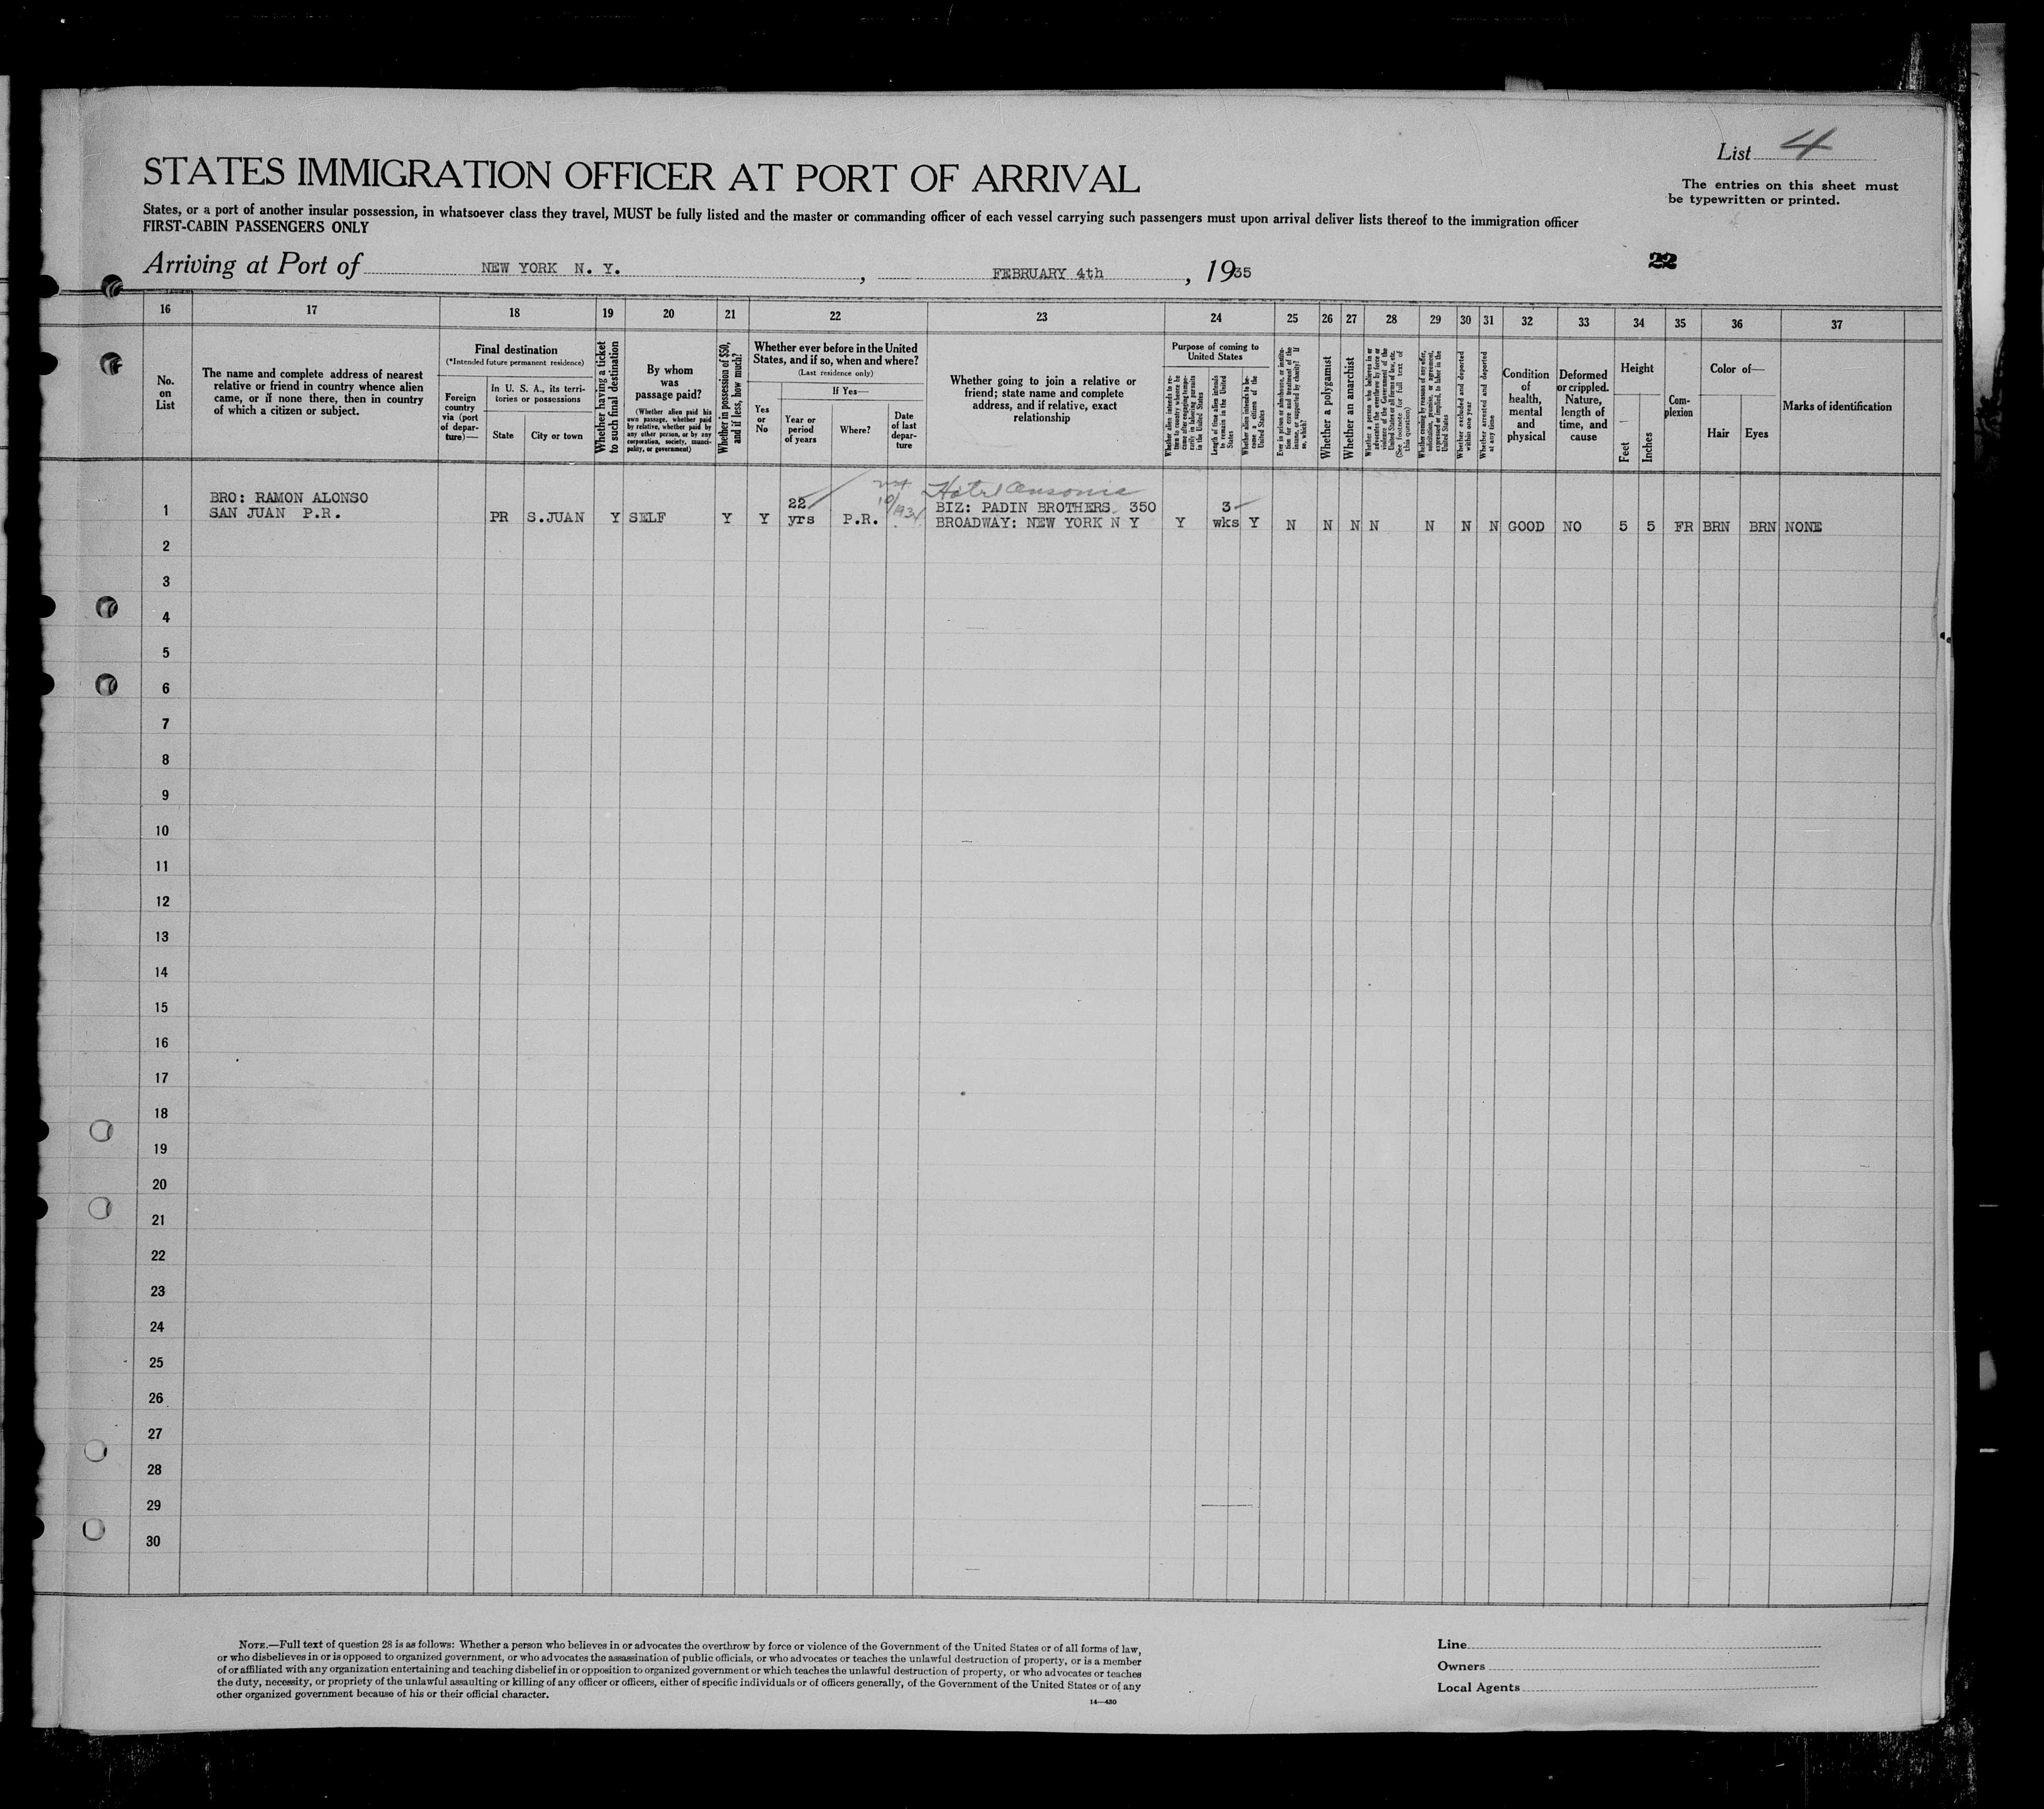 List 4
STATES IMMIGRATION OFFICER AT PORT OF ARRIVAL
The entries on this sheet must
be typewritten or printed.
States, or a port of another insular possession, in whatsoever class they travel, MUST be fully listed and the master or commanding officer of each vessel carrying such passengers must upon arrival deliver lists thereof to the immigration officer
FIRST-CABIN PASSENGERS ONLY
Arriving at Port of NEW YORK N. Y. , FEBRUARY 4th , 1935
22
16 17 18 19 20 21 22 23 24 25 26 27 28 29 30 31 32 33 34 35 36 37
No.
on
List
The name and complete address of nearest
relative or friend in country whence alien
came, or if none there, then in country
of which a citizen or subject.
Final destination
(*Intended future permanent residence)
Foreign
country
via (port
of depar-
ture)—
In U. S. A., its terri-
tories or possessions
State
City or town
Whether having a ticket
to such final destination
By whom
was
passage paid?
(Whether alien paid his
own passage, whether paid
by relative, whether paid by
any other person, or by any
corporation, society, munici-
pality, or government)
Whether in possession of $50,
and if less, how much?
Whether ever before in the United
States, and if so, when and where?
(Last residence only)
Yes
or
No
If Yes—
Year or
period
of years
Where?
Date
of last
depar-
ture
Whether going to join a relative or
friend; state name and complete
address, and if relative, exact
relationship
Purpose of coming to
United States
Whether alien intends to re-
turn to country whence he
came after engaging tempo-
rarily in laboring pursuits
in the United States
Length of time alien intends
to remain in the United
States
Whether alien intends to be-
come a citizen of the
United States
Ever in prison or almshouse, or institu-
tion for care and treatment of the
insane, or supported by charity? If
so, which?
Whether a polygamist
Whether an anarchist
Whether a person who believes in or
advocates the overthrow by force or
violence of the Government of the
United States or all forms of law, etc.
(See footnote for full text of
this question)
Whether coming by reasons of any offer,
solicitation, promise, or agreement,
expressed or implied, to labor in the
United States
Whether excluded and deported
within one year
Whether arrested and deported
at any time
Condition
of
health,
mental
and
physical
Deformed
or crippled.
Nature,
length of
time, and
cause
Height
Feet
Inches
Com-
plexion
Color of—
Hair
Eyes
Marks of identification
Hotel Ansonia
10/1934
BRO: RAMON ALONSO 22 BIZ: PADIN BROTHERS 350 3
1 SAN JUAN P.R. PR S.JUAN Y SELF Y Y yrs P.R. BROADWAY: NEW YORK N Y Y wks Y N N N N N N N GOOD NO 5 5 FR BRN BRN NONE
2
3
4
5
6
7
8
9
10
11
12
13
14
15
16
17
18
19
20
21
22
23
24
25
26
27
28
29
30
NOTE.—Full text of question 28 is as follows: Whether a person who believes in or advocates the overthrow by force or violence of the Government of the United States or of all forms of law,
or who disbelieves in or is opposed to organized government, or who advocates the assassination of public officials, or who advocates or teaches the unlawful destruction of property, or is a member
of or affiliated with any organization entertaining and teaching disbelief in or opposition to organized government or which teaches the unlawful destruction of property, or who advocates or teaches
the duty, necessity, or propriety of the unlawful assaulting or killing of any officer or officers, either of specific individuals or of officers generally, of the Government of the United States or of any
other organized government because of his or their official character.
14—430
Line
Owners
Local Agents